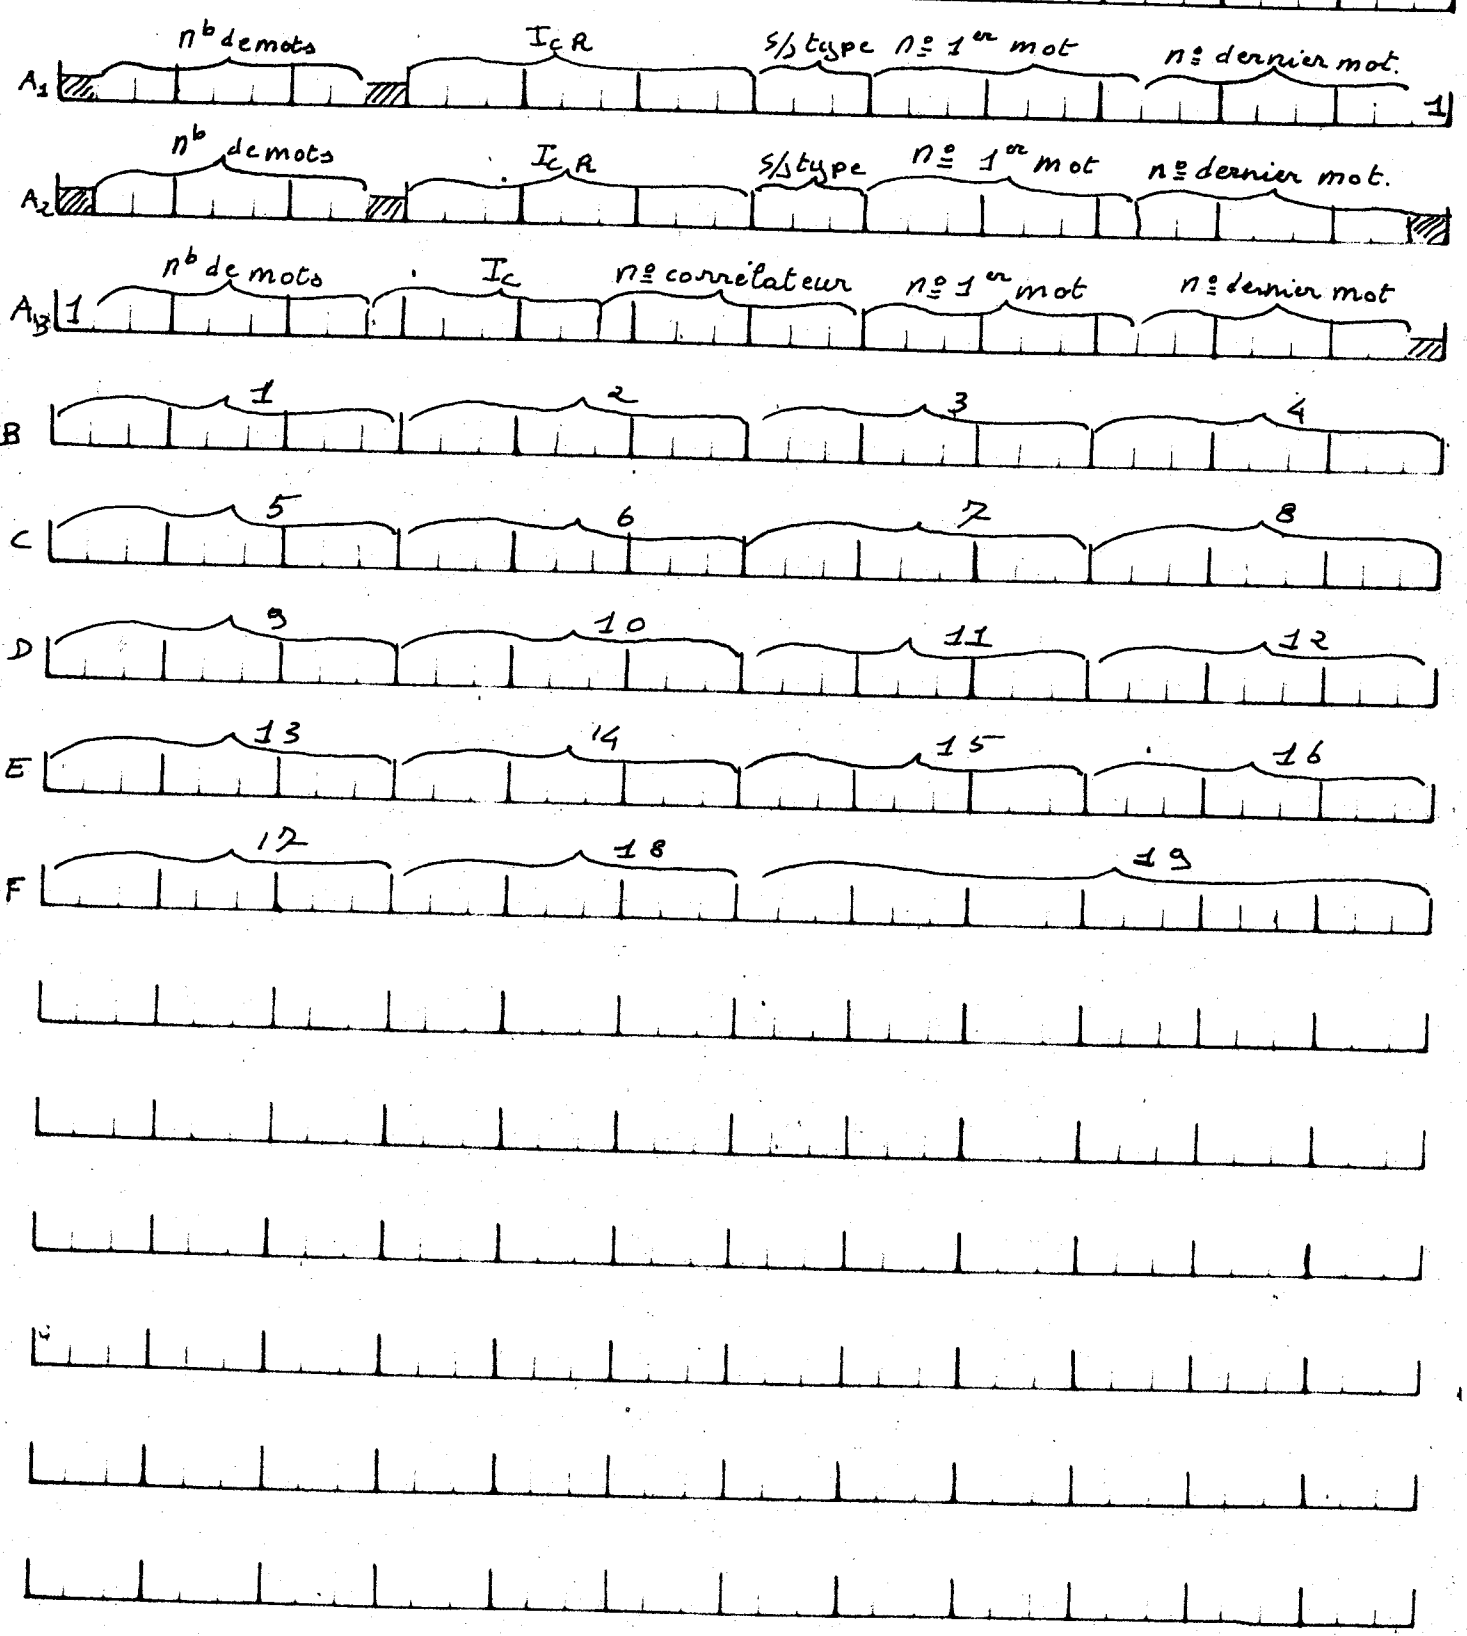 A1 nb de mots IcR s/s type nº 1er mot nº dernier mot. 1
A2 nb de mots IcR s/s type nº 1er mot nº dernier mot.
A3 1 nb de mots Ic nº corrélateur nº 1er mot nº dernier mot
B 1 2 3 4
C 5 6 7 8
D 9 10 11 12
E 13 14 15 16
F 17 18 19